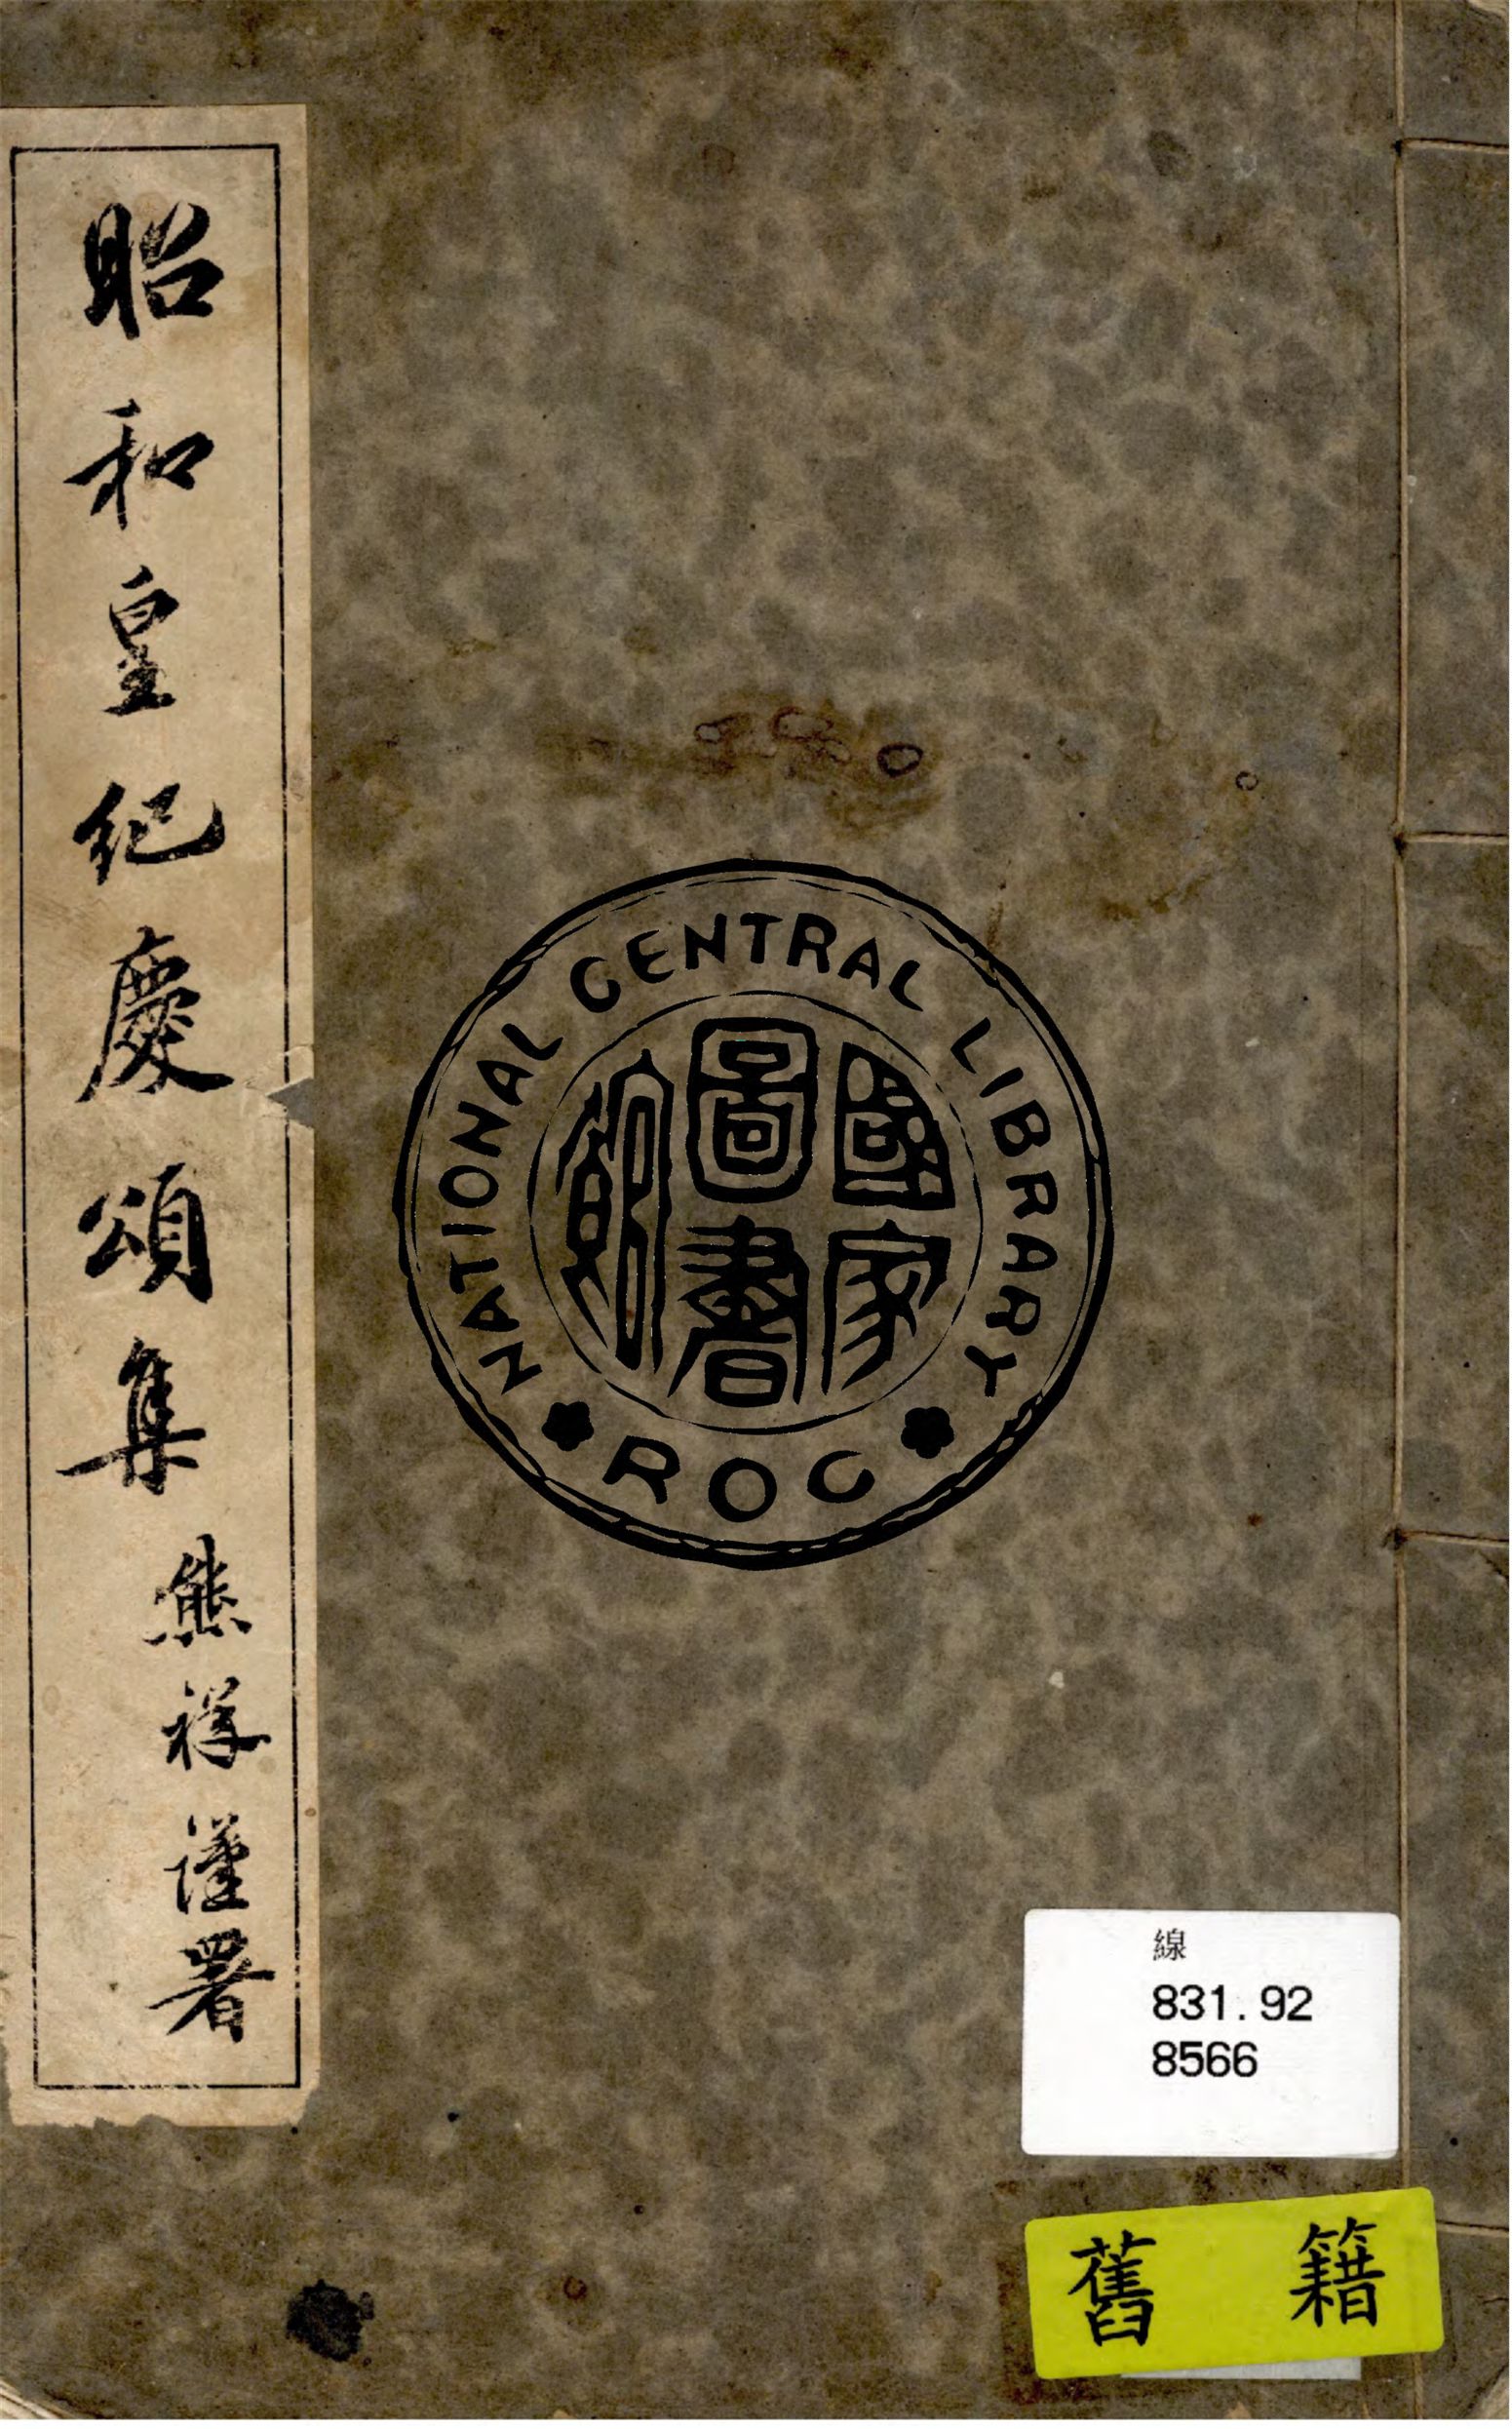 昭和皇紀慶頌集
熊祥謹署
NATIONAL CENTRAL LIBRARY
國家圖書館
ROC
線
831.92
8566
舊籍